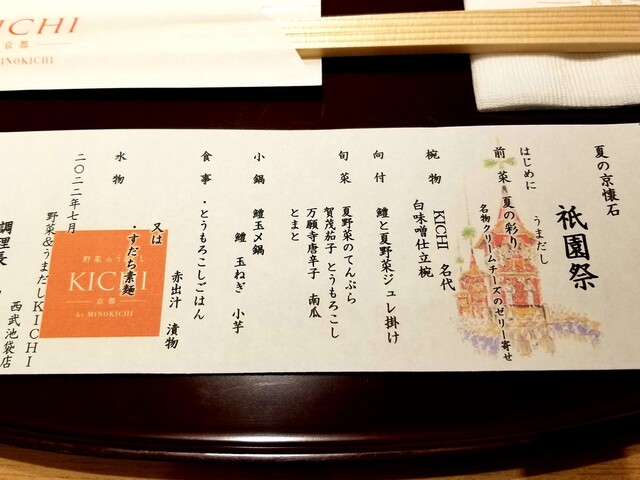 KICHI
京都
MINOKICHI
夏の京懐石
祇園祭
はじめに うまだし
前菜 夏の彩り
名物クリームチーズのゼリー寄せ
椀物 KICHI 名代
白味噌仕立椀
向付 鱧と夏野菜ジュレ掛け
旬菜 夏野菜のてんぷら
賀茂茄子 とうもろこし
万願寺唐辛子 南瓜
とまと
小鍋 鱧玉〆鍋
鱧 玉ねぎ 小芋
食事 ・とうもろこしごはん
赤出汁 漬物
又は
・すだち素麺
水物
二〇二二年七月
野菜&うまだしKICHI
西武池袋店
調理長
野菜&うまだし
KICHI
京都
by MINOKICHI